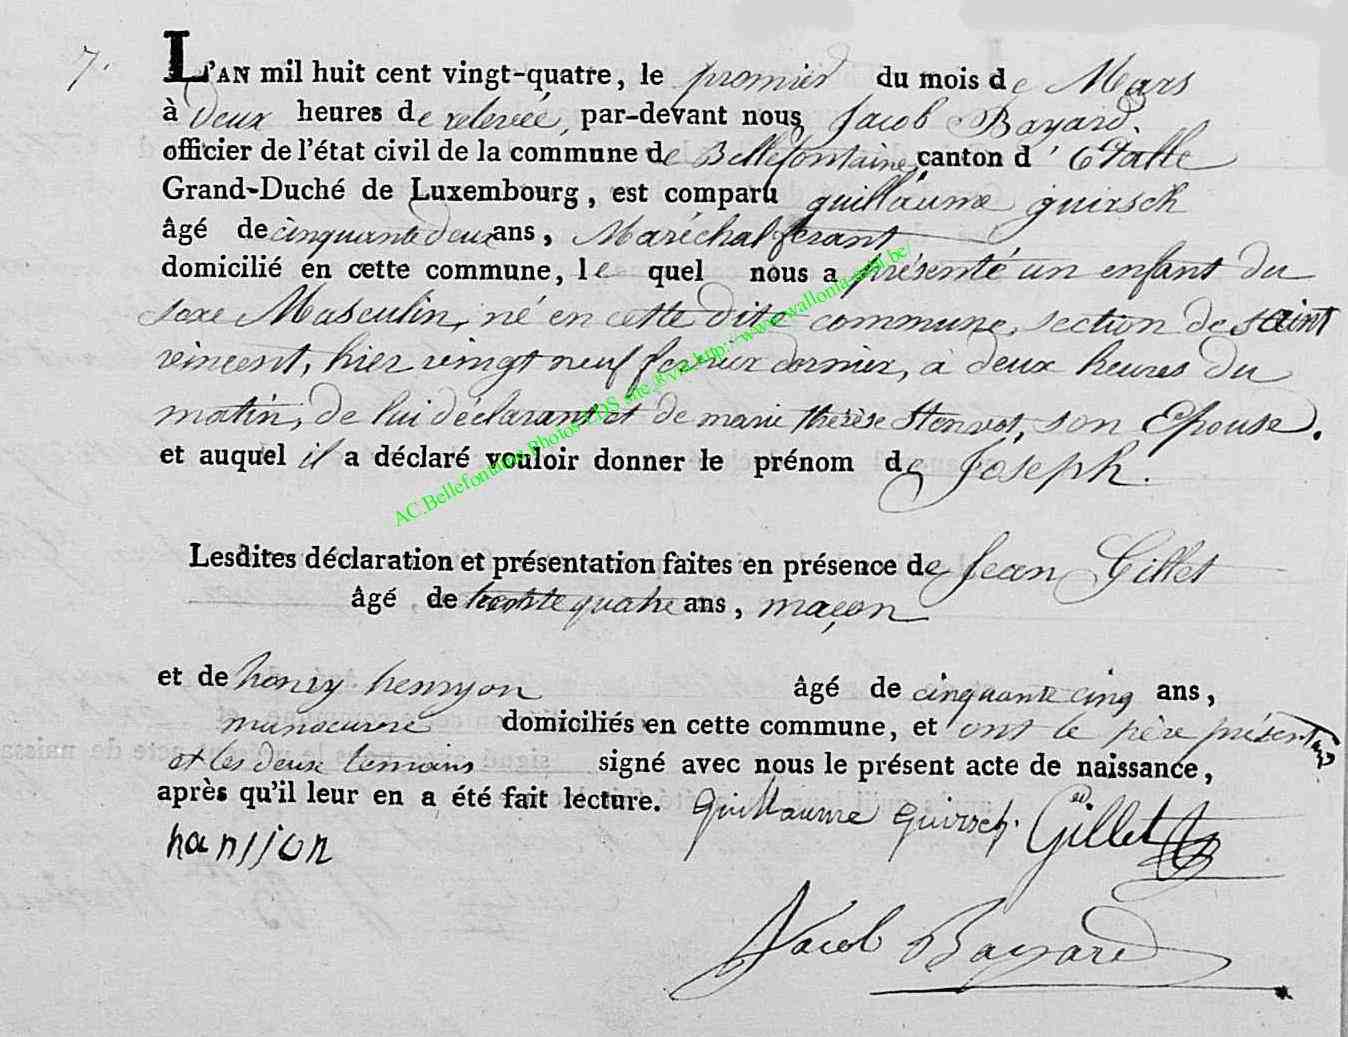 7.
L'AN mil huit cent vingt-quatre, le premier du mois de Mars
à Deux heures de relevée, par-devant nous Jacob Bayard.
officier de l'état civil de la commune de Bellefontaine, canton d'Etalle
Grand-Duché de Luxembourg, est comparu guillaume guirsch
âgé de cinquante deux ans, Maréchal ferant
domicilié en cette commune, le quel nous a présenté un enfant du
sexe Masculin, né en cette dite commune, section de saint
vincent, hier vingt neuf fevrier dernier, à deux heures du
matin, de lui déclarant et de marie thérèse son Epouse.
et auquel il a déclaré vouloir donner le prénom de Joseph.
AC.Bellefontaine Photos
Lesdites déclaration et présentation faites en présence de Jean Gillet
âgé de trente quatre ans, maçon
et de henry henryon âgé de cinquante cinq ans,
manoeuvre domiciliés en cette commune, et ont le père présentant
et les deux temoins signé avec nous le présent acte de naissance,
après qu'il leur en a été fait lecture. Guillaume Guirsch. Gillet
Jacob Bayard